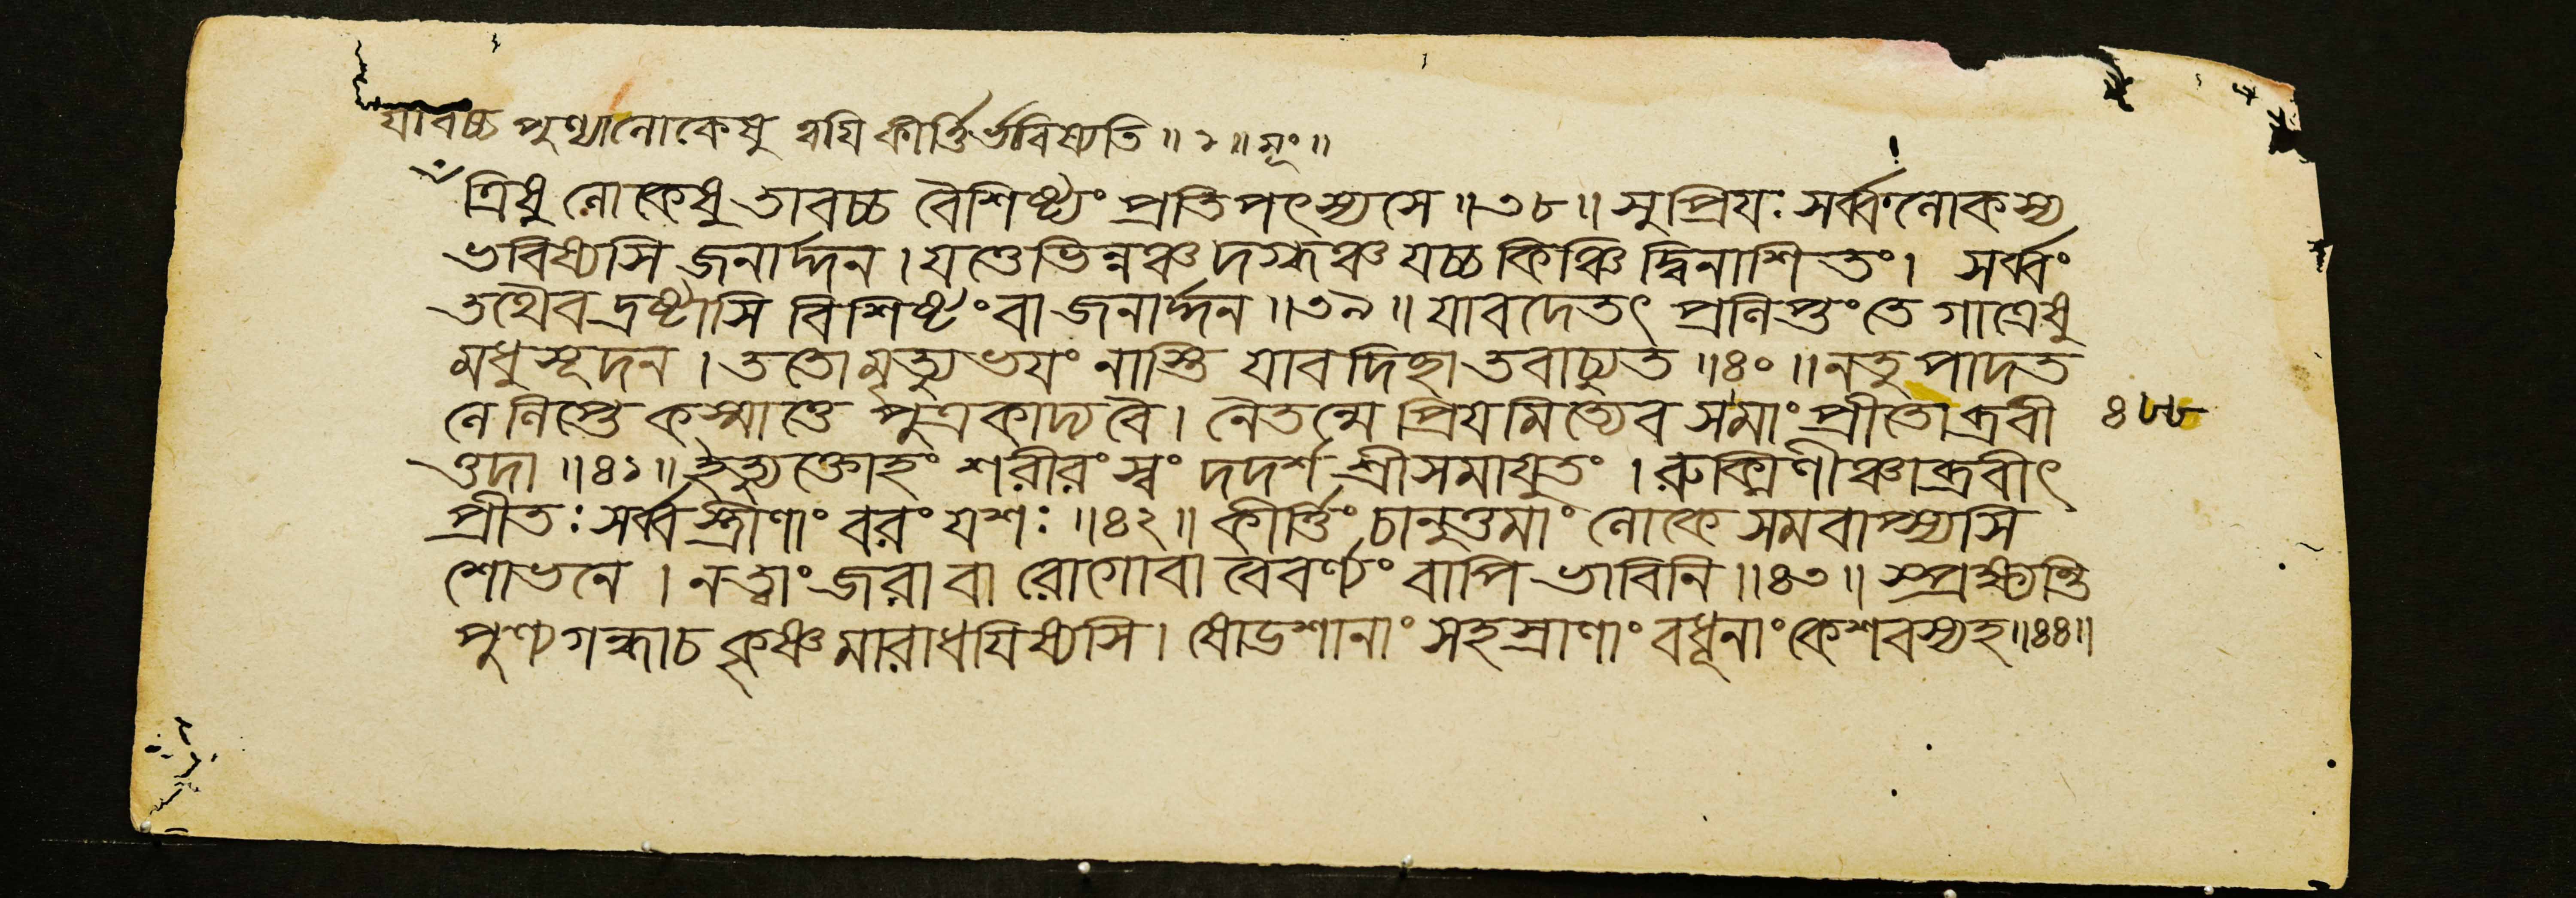 যাবচ্চ পুণ্যা লোকেষু ত্বয়ি কীর্ত্তির্ভবিষ্যতি ॥ ১ ॥ নূং ॥
ত্রিষু লোকেষু তাবচ্চ বৈশিষ্ট্যং প্রতিপৎস্যসে ॥ ৩৮ ॥ সুপ্রিযঃ সর্ব্বলোকস্য
ভবিষ্যসি জনার্দ্দন । যত্তেভিন্নঞ্চ দগ্ধঞ্চ যচ্চ কিঞ্চিদ্বিনাশিতং । সর্ব্বং
তথৈব দ্রষ্টাসি বিশিষ্টং বা জনার্দ্দন ॥ ৩৯ ॥ যাবদেতৎ প্রলিপ্তং তে গাত্রেষু
মধুসূদন । ততো মৃত্যুভযং নাস্তি যাবদিচ্ছা তবাচ্যুত ॥ ৪০ ॥ নতু পাদত
লে লিপ্তে কস্মাত্তে পুত্রকাদ্য বৈ । নৈতন্মে প্রিযমিত্যেব স মাং প্রীতোব্রবী ৪৮৮
ত্তদা ॥ ৪১ ॥ ইত্যুক্তোহং শরীরং স্বং দদর্শ শ্রীসমাযুতং । রুক্মিণীঞ্চাব্রবীৎ
প্রীতঃ সর্ব্বস্ত্রীণাং বরং যশঃ ॥ ৪২ ॥ কীর্ত্তিং চানুত্তমাং লোকে সমবাপ্স্যসি
শোভনে । ন ত্বাং জরা বা রোগো বা বৈবর্ণ্যং বাপি ভাবিনি ॥ ৪৩ ॥ স্প্রক্ষ্যন্তি
পুণ্যগন্ধাচ কৃষ্ণমারাধযিষ্যসি । ষোডশানাং সহস্রাণাং বধূনাং কেশবস্যহ ॥ ৪৪ ॥